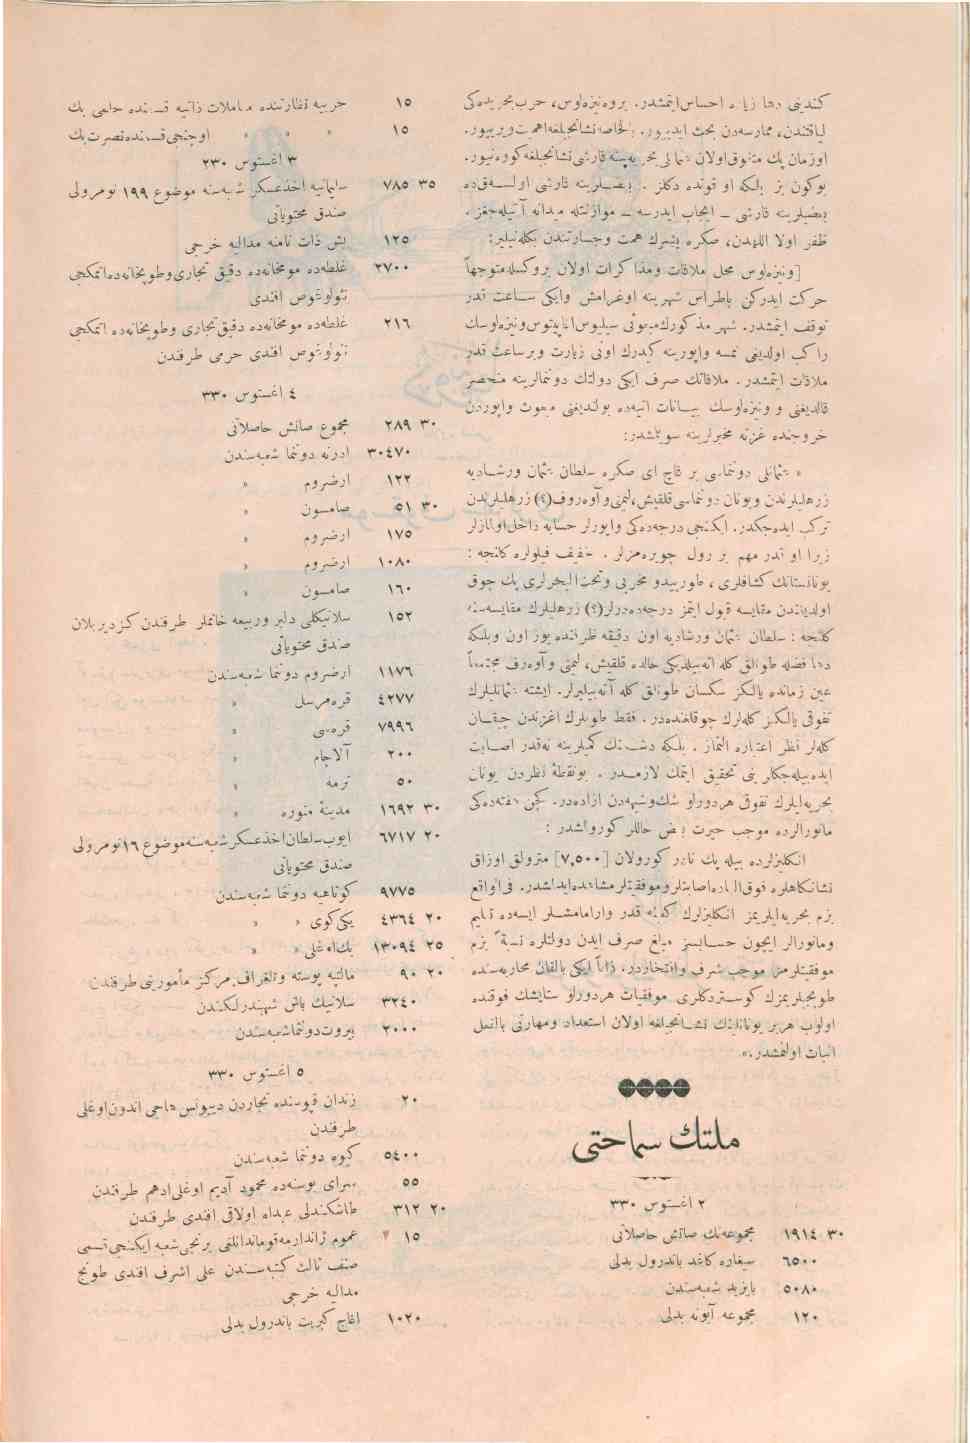 كندینی دها زیاده احساس ایتمشدر. بروه نیزه‌لوس، حرب بحریده‌كی
لیاقتندن، ممارسه‌دن بحث ایدییور. بالخاصه نشانجیلغه اهمیت ویرییور.
اوزمان پك متفوق اولان عثمانلی بحریه‌سنه قارشی نشانجیلغه كوره‌نیور.
بوكون بز بلكه او قوتده دكلز . بعضیلرینه قارشی اولسه‌ق ده
بعضیلرینه قارشی ـ ایجاب ایدرسه ـ موازنتله میدانه آتیله‌جغز .
ظفر اولا اللهدن، صكره بشرك همت وجسارتندن بكله‌نیلیر:
[ونیزه‌لوس محل ملاقات ومذاكرات اولان بروكسله متوجهاً
حركت ایدركن پاطراس شهرینه اوغرامش وایكی ساعت قدر
توقف ایتمشدر. شهر مذكورك مبعوثی سیلیوس
راكب اولدیغی نمسه واپورینه كیدرك اونی زیارت وبرساعت قدر
ملاقات ایتمشدر. ملاقاتك صرف ایكی دولتك دونمالرینه منحصر
قالدیغنی و ونیزه‌لوسك بیانات آتیه‌ده بولندیغنی مبعوث واپوردن
خروجنده غزته مخبرلرینه سویلمشدر:
« عثمانلی دونماسی بر قاچ آی صكره سلطان عثمان ورشادیه
زرهلیلرندن ویونان دونماسی قلقیش، لیمنی وآوه‌روف (؟) زرهلیلرندن
تركب ایده‌جكدر. ایكنجی درجه‌ده‌كی واپورلر حسابه داخل اولمازلر
زیرا او قدر مهم بر رول چویره‌مزلر . خفیف فیلولره كلنجه :
یونانستانك كشافلری ، طورپیدو مخربی وتحت البحرلری پك چوق
اولدیغندن مقایسه قبول ایتمز درجه‌ده‌درلر(؟) زرهلیلرك مقایسه‌سنه
كلنجه : سلطان عثمان ورشادیه اون دقیقه ظرفنده یوز اون وبلكه
دها فضله طوپلق كله آته‌بیلدیكی حالده قلقیش، لیمنی وآوه‌رف مجتمعاً
عین زمانده یالكز سكسان طوپلق كله آته‌بیلیرلر. ایشته عثمانلیلرك
تفوقی یالكز كله‌لرك چوقلغنده‌در . فقط طوپلرك اغزندن چیقان
كله‌لر نظر اعتباره النماز . بلكه دشمنك كمیلرینه نه‌قدر اصابت
ایده‌بیله‌جكلرینی تحقیق ایتمك لازمدر . بونقطهٔ نظردن یونان
بحریه‌لیلرك تفوقی هردورلو شك‌وشبهه‌دن ازاده‌در. كچن هفته‌ده‌كی
مانورالرده موجب حیرت بعض حاللر كورولشدر :
انكلیزلرده بیله پك نادر كورولان [٧,٥٠٠] مترولق اوزاق
نشانكاهلره فوق العاده اصابتلر وموفقیتلر مشاهده ایدلشدر. فی الواقع
بزم بحریه‌لیلریمز انكلیزلرك كعبنه قدر وارامامشلر ایسه‌ده تعلیم
ومانورالر ایچون حسابسز مبلغ صرف ایدن دولتلره نسبةً بزم
موفقیتلرمز موجب شرف وافتخاردر. ذاتاً ایكی بالقان محاربه‌سنده
طوپجیلریمزك كوستردكلری موفقیات هردورلو ستایشك فوقنده
اولوب هربر یونانلینك نشانجیلغه اولان استعداد ومهارتی بالفعل
اثبات اولنمشدر.»
ملتك سماحتی
٢ اغستوس ٣٣٠
٣٠ ١٩١٤ مجموعه‌نك صاتش حاصلاتی
٦٥٠٠ سیغاره كاغد باندرول بدلی
٥٠٨٠ بایزید شعبه‌سندن
١٢٠ مجموعه آبونه بدلی
١٥ حربیه نظارتنده معاملات ذاتیه قسمنده حلمی بك
١٥ » » » اوچنجی قسمنده نصرت بك
٣ اغستوس ٢٣٠
٣٥ ٧٨٥ سلیمانیه اخذعسكر شعبه‌سنه موضوع ١٩٩ نومرولی
صندق محتویاتی
١٢٥ بش ذات نامنه مدالیه خرجی
٢٧٠٠ غلطه‌ده مومخانه‌ده دقیق تجاری وطوپخانه‌ده اتمكجی
افندی
٢١٦ غلطه‌ده مومخانه‌ده دقیق تجاری وطوپخانه‌ده اتمكجی
افندی حرمی طرفندن
٤ اغستوس ٣٣٠
٣٠ ٢٨٩ مجموع صاتش حاصلاتی
٣٠٤٧٠ ادرنه دوننما شعبه‌سندن
١٢٢ ارضروم »
٣٠ ٥١ صامسون »
١٧٥ ارضروم »
١٠٨٠ ارضروم »
١٦٠ صامسون »
١٥٢ سلانیكلی دلبر وربیعه خانملر طرفندن كزدیریلان
صندق محتویاتی
١١٧٦ ارضروم دوننما شعبه‌سندن
٤٢٧٧ قره‌مرسل »
٧٩٩٦ قره‌سی »
٢٠٠ آلاجام »
٥٠ ترمه »
٣٠ ١٦٩٢ مدینهٔ منوره »
٢٠ ٦٧١٧ ایوب سلطان اخذعسكر شعبه‌سنه موضوع ١٦ نومرولی
صندق محتویاتی
٩٧٧٥ كوتاهیه دوننما شعبه‌سندن
٢٠ ٤٣٦٤ یكی كوی » »
٢٥ ١٣٠٩٤ بك اوغلی » »
٢٠ ٩٠ مالتپه پوسته وتلغراف مركز مأمورینی طرفندن
٣٢٤٠ سلانیك باش شهبندرلكندن
٢٠٠٠ بیروت دوننما شعبه‌سندن
٥ اغستوس ٣٣٠
٢٠ زندان قپوسنده تجاردن دیبونس حاجی اندون اوغلی
طرفندن
٥٤٠٠ كیوه دوننما شعبه‌سندن
٥٥ سرای بوسنه‌ده محمود آدیم اوغلی ادهم طرفندن
٢٠ ٣١٢ طاشكندلی عبداه اولاقی افندی طرفندن
١٥ عموم ژاندارمه قوماندانلغی برنجی شعبه ایكنجی قسمی
صنف ثالث كتبه‌سندن علی اشرف افندی طونج
مدالیه خرجی
١٠٢٠ اغاج كبریت باندرول بدلی